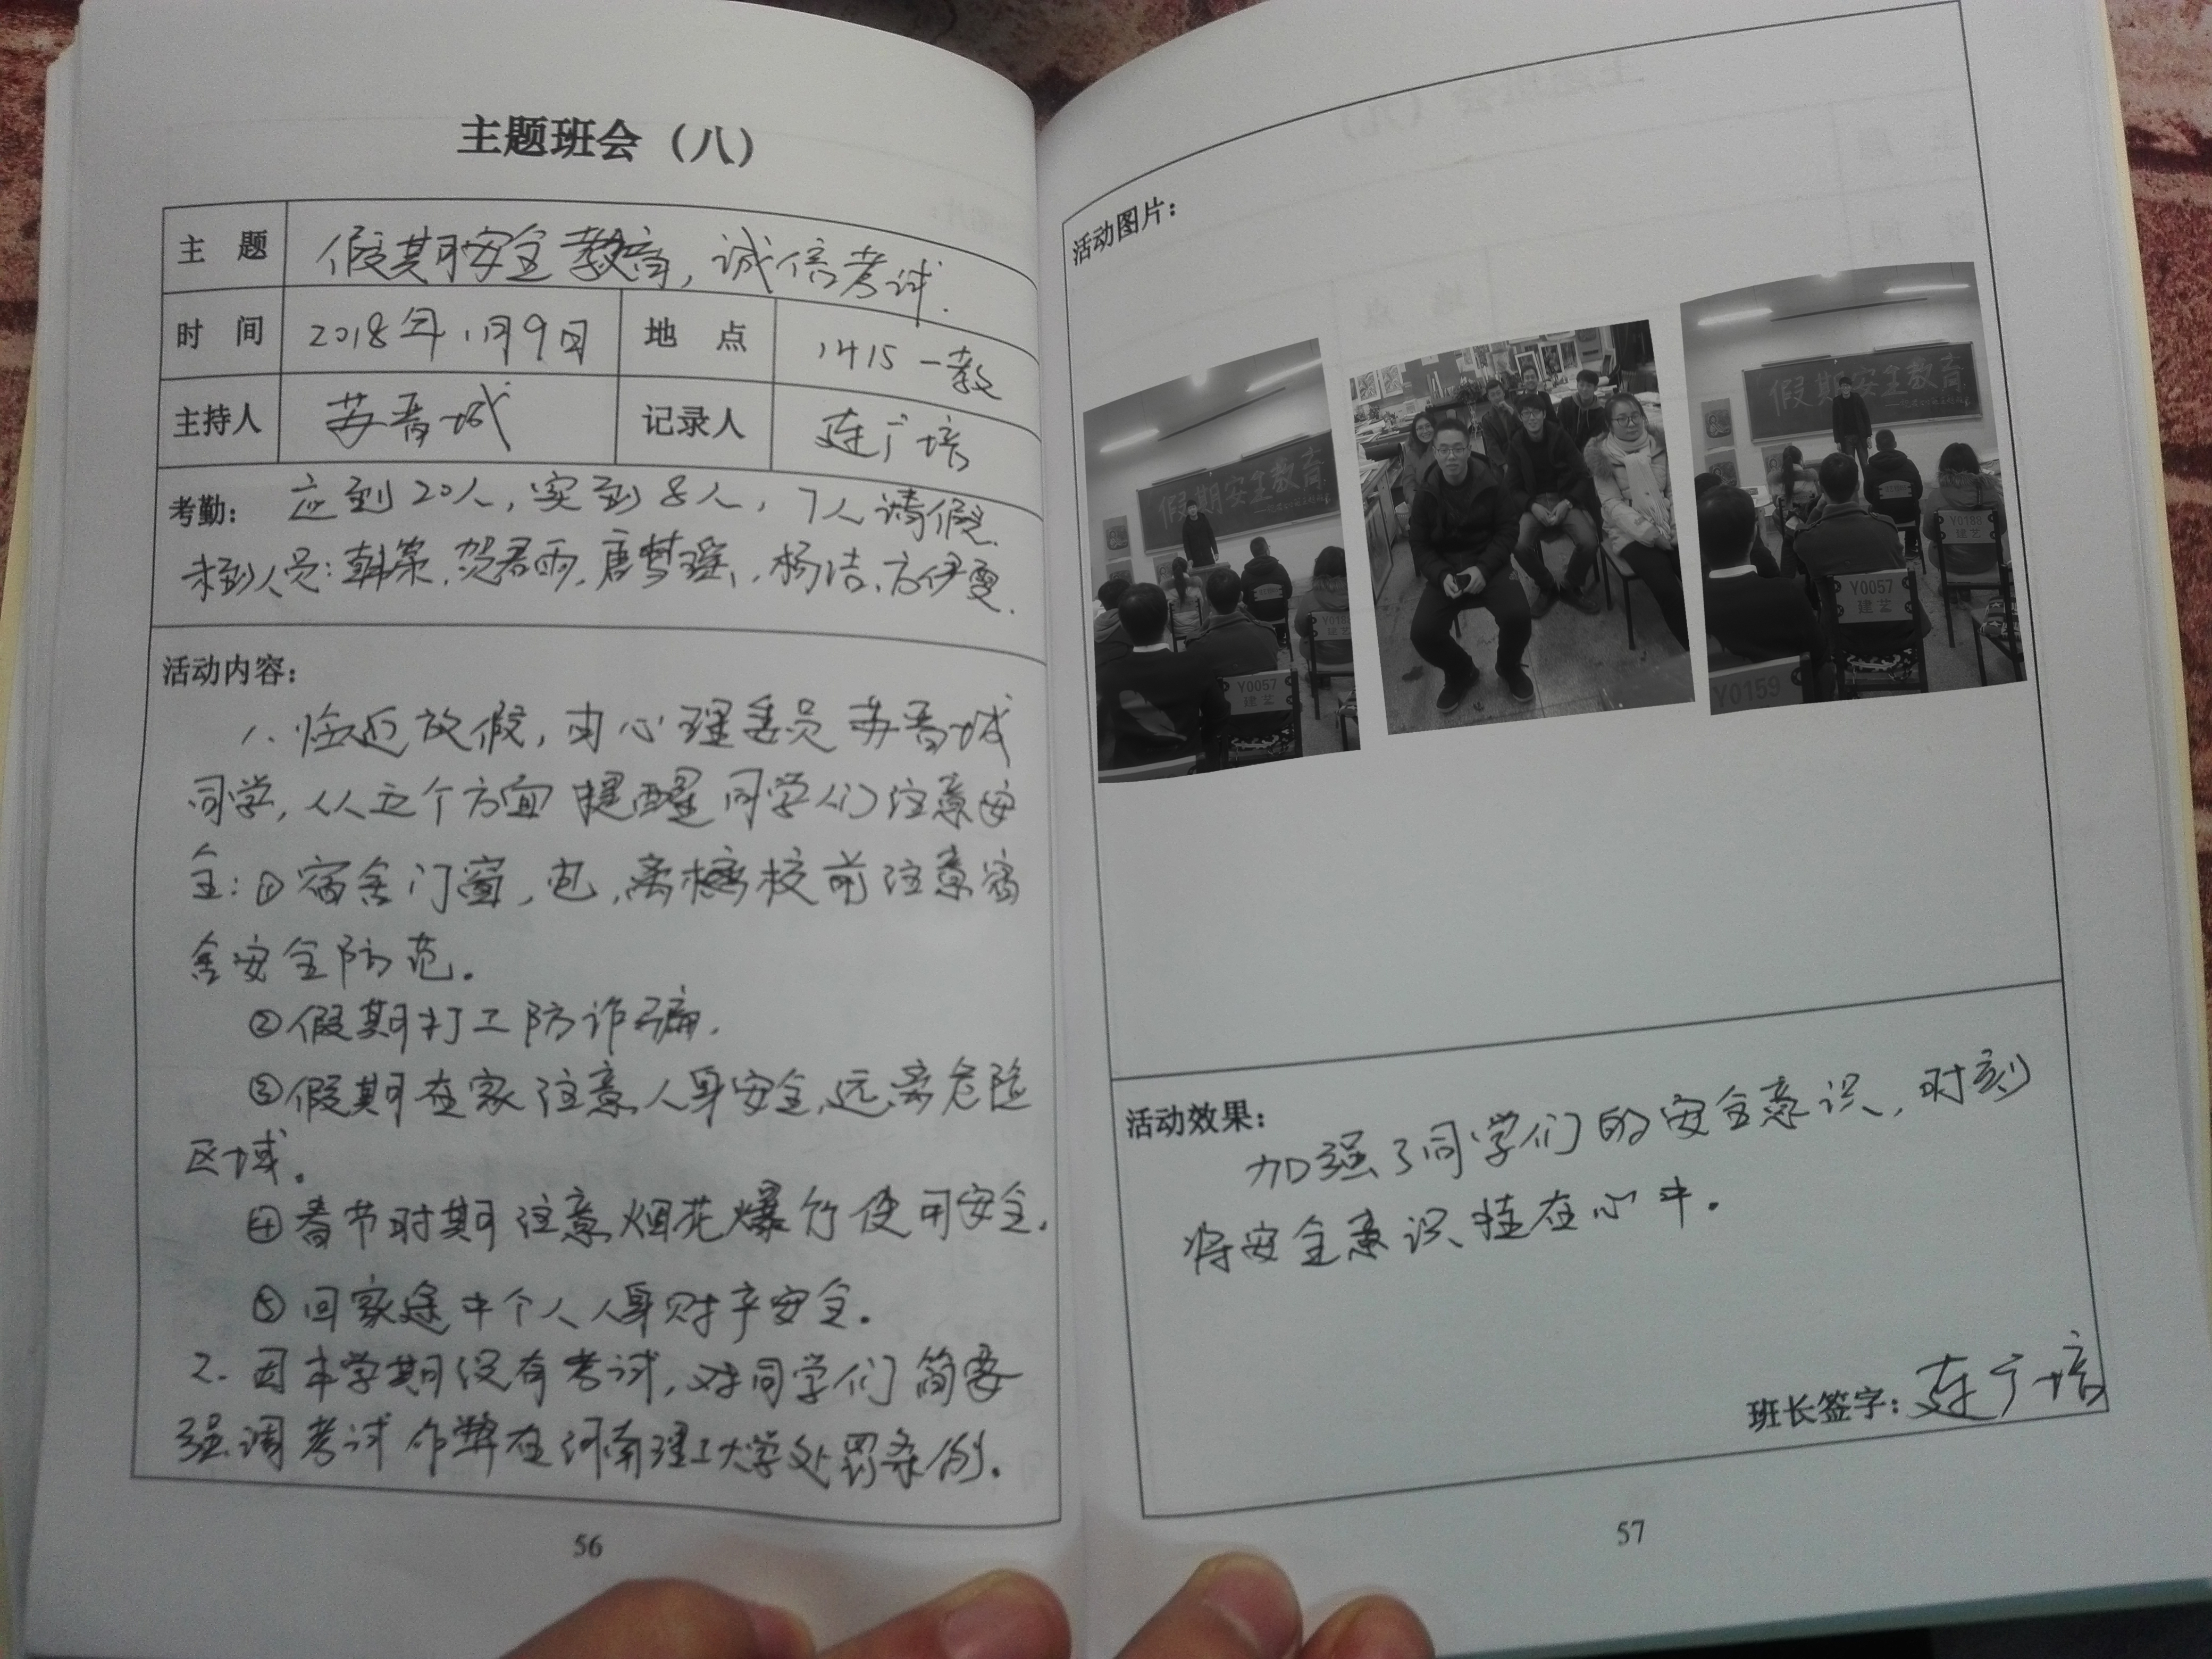 主题班会（八）
主 题 假期安全教育，诚信考试.
时 间 2018年1月9日 地 点 1415 一教
主持人 苏晋城 记录人 连广培
考勤： 应到20人，实到8人，7人请假.
未到人员：韩荣，贺君雨，唐梦瑶，杨洁，方伊雯.
活动内容：
1. 临近放假，由心理委员苏晋城
同学，从五个方面提醒同学们注意安
全：①宿舍门窗，电，离校前注意宿
舍安全防范。
②假期打工防诈骗.
③假期在家注意人身安全，远离危险
区域。
④春节时期注意烟花爆竹使用安全.
⑤回家途中个人人身财产安全.
2. 因本学期没有考试，对同学们简要
强调考试作弊在河南理工大学处罚条例.
56
活动图片：
假期安全教育
Y0188
建艺
Y0057
建艺
假期安全教育
Y0188
建艺
Y0057
建艺
Y0159
活动效果：
加强了同学们的安全意识，时刻
将安全意识挂在心中.
班长签字：连广培
57